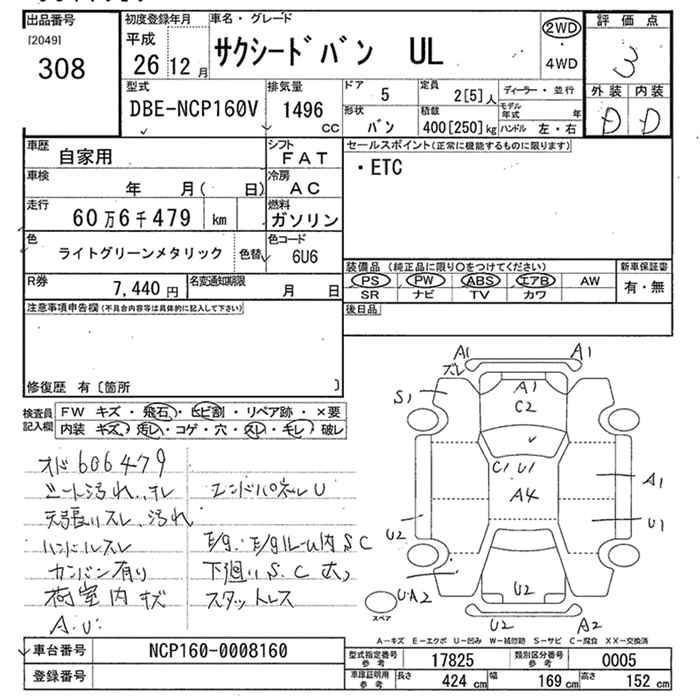 出品番号
[2049]
308
初度登録年月
平成
26 12 月
車名・グレード
サクシードバン UL
2WD
・
4WD
評価点
3
外装 内装
D D
型式
DBE-NCP160V
排気量
1496
cc
ドア
5
定員
2[5]人
ディーラー・並行
モデル年式 年
形状
バン
積載
400[250]kg
ハンドル 左・右
車歴
自家用
シフト
FAT
車検
年 月( 日)
冷房
AC
走行
60万6千479 km
燃料
ガソリン
色
ライトグリーンメタリック
色替
色コード
6U6
R券
7,440 円
名変通知期限
月 日
セールスポイント(正常に機能するものに限ります)
・ETC
装備品(純正品に限り○をつけてください)
PS PW ABS エアB AW
SR ナビ TV カワ
新車保証書
有・無
後日品
注意事項申告欄(不具合内容等は具体的に記入して下さい)
修復歴 有〔箇所 〕
検査員
記入欄
FW キズ・飛石・ヒビ割・リペア跡・×要
内装 キズ・汚レ・コゲ・穴・スレ・キレ・破レ
オド606479
シート汚れ、キレ
エンドパネルU
天張りスレ、汚れ
ハンドルスレ
E/g. E/gルーム内 S C
カンバン有り
下廻り S.C 大
荷室内 キズ
スタットレス
A.U.
A1 A1
ズレ
A1
C2
S1
C1 U1
A4
A1
U1
U2
UA2
U2
U2 A2
スペア
A－キズ E－エクボ U－凹み W－補修跡 S－サビ C－腐食 XX－交換済
車台番号
NCP160-0008160
登録番号
型式指定番号
参考
17825
類別区分番号
参考
0005
車庫証明用
参考
長さ
424 cm
幅
169 cm
高さ
152 cm